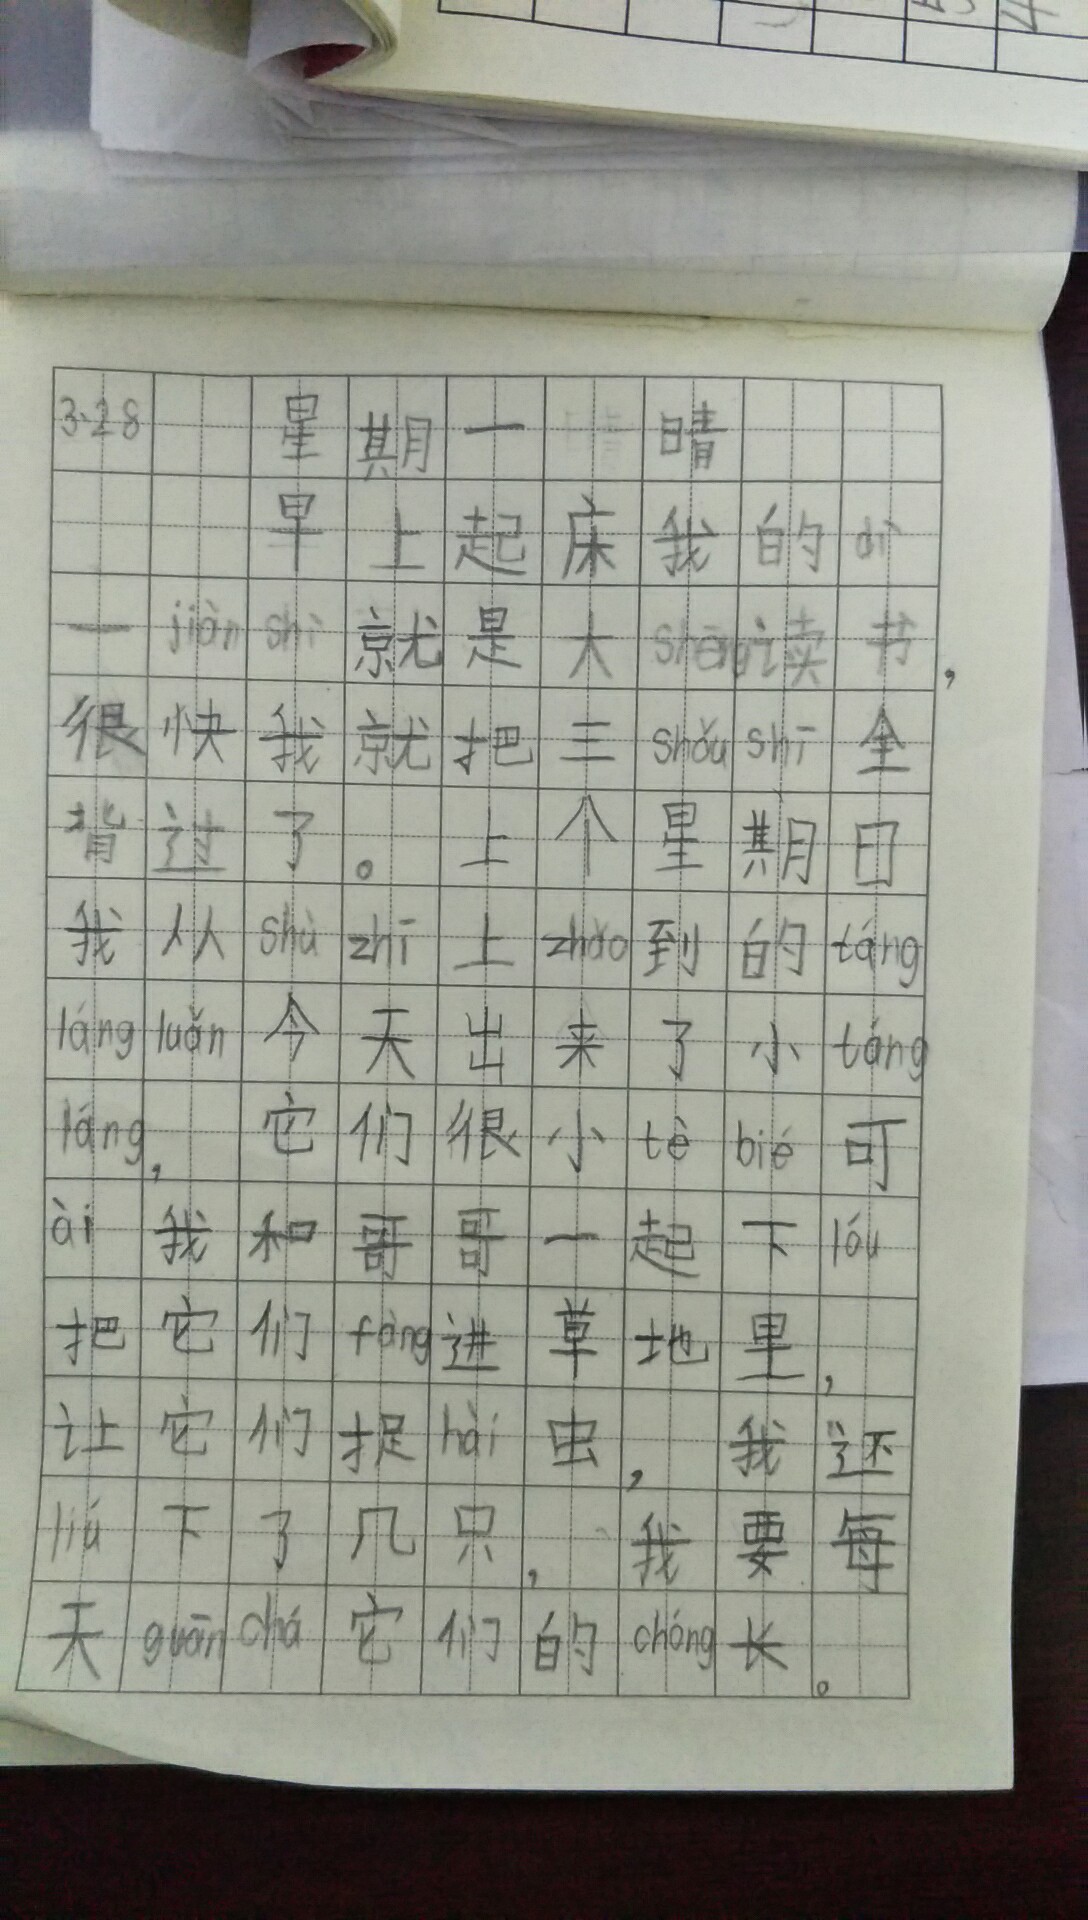 3·28 星期一 晴
早上起床我的dì
一jiàn shì就是大shēng读书,
很快我就把三shǒu shī全
背过了。上个星期日
我从shù zhī上zhǎo到的táng
láng luǎn今天出来了小táng
láng, 它们很小tè bié可
ài 我和哥哥一起下lóu
把它们fàng进草地里,
让它们捉hài虫, 我还
liú下了几只, 我要每
天guān chá它们的chéng长。